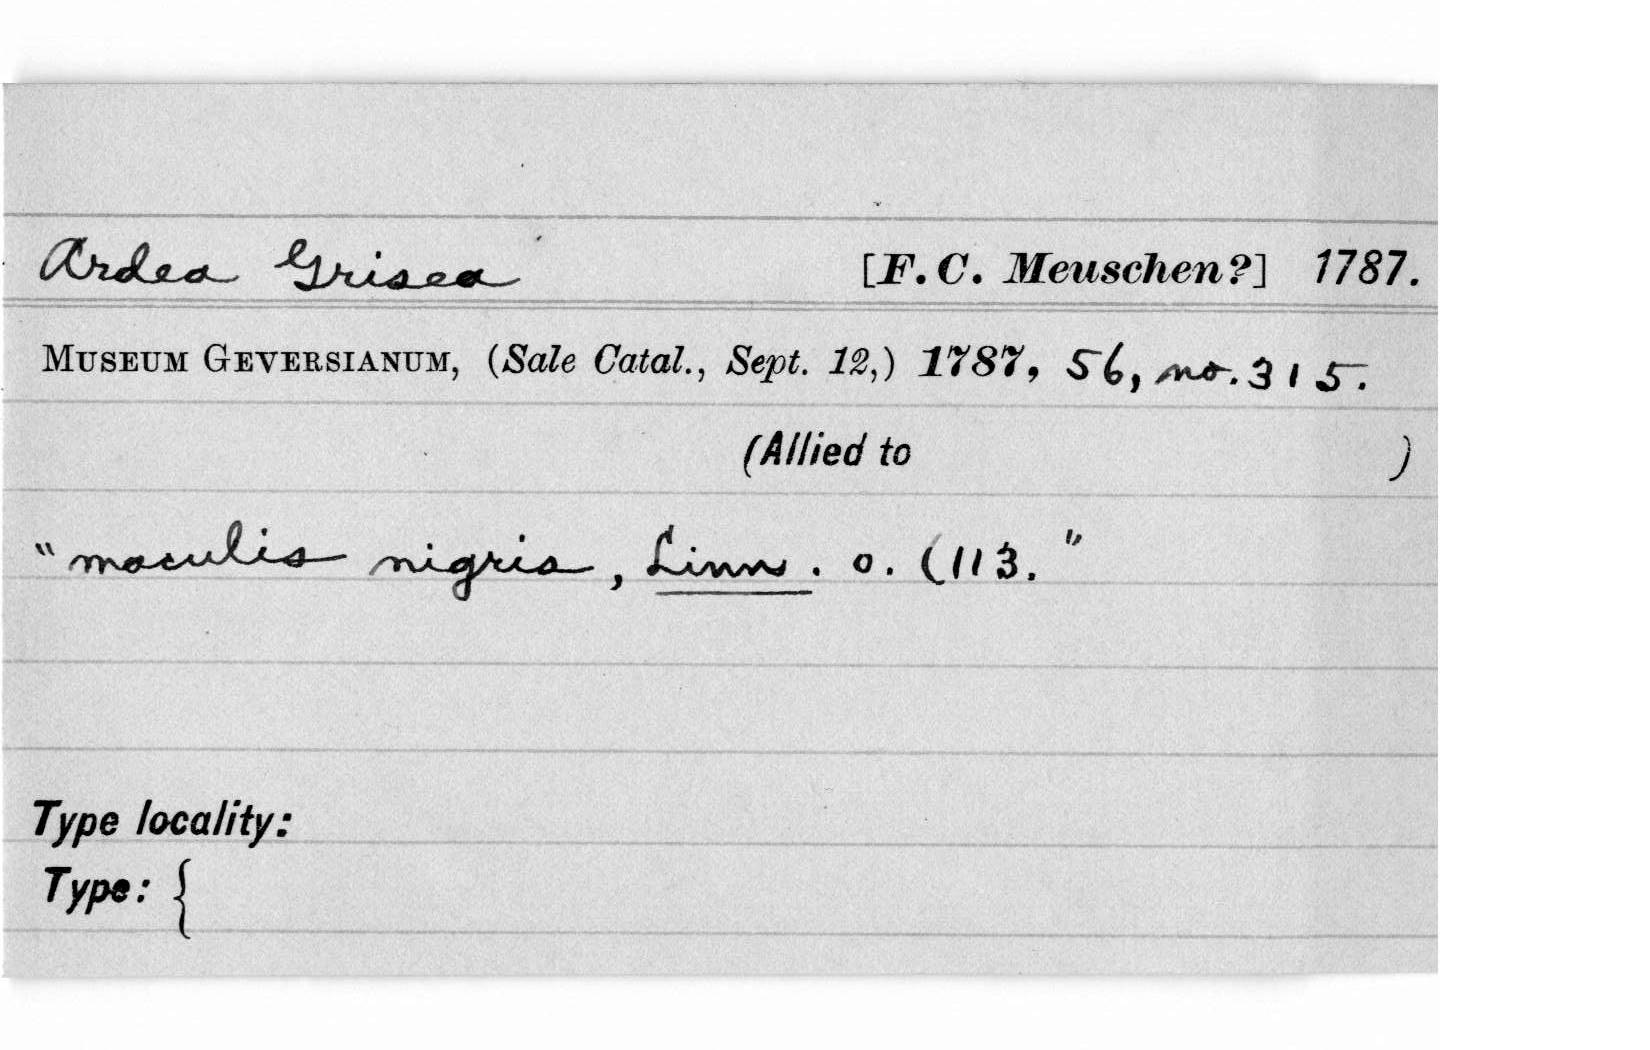 Ardea Grisea [F. C. Meuschen?] 1787.
MUSEUM GEVERSIANUM, (Sale Catal., Sept. 12,) 1787, 56, no. 315.
(Allied to )
"maculis nigris, Linn. o. (113."
Type locality:
Type: {